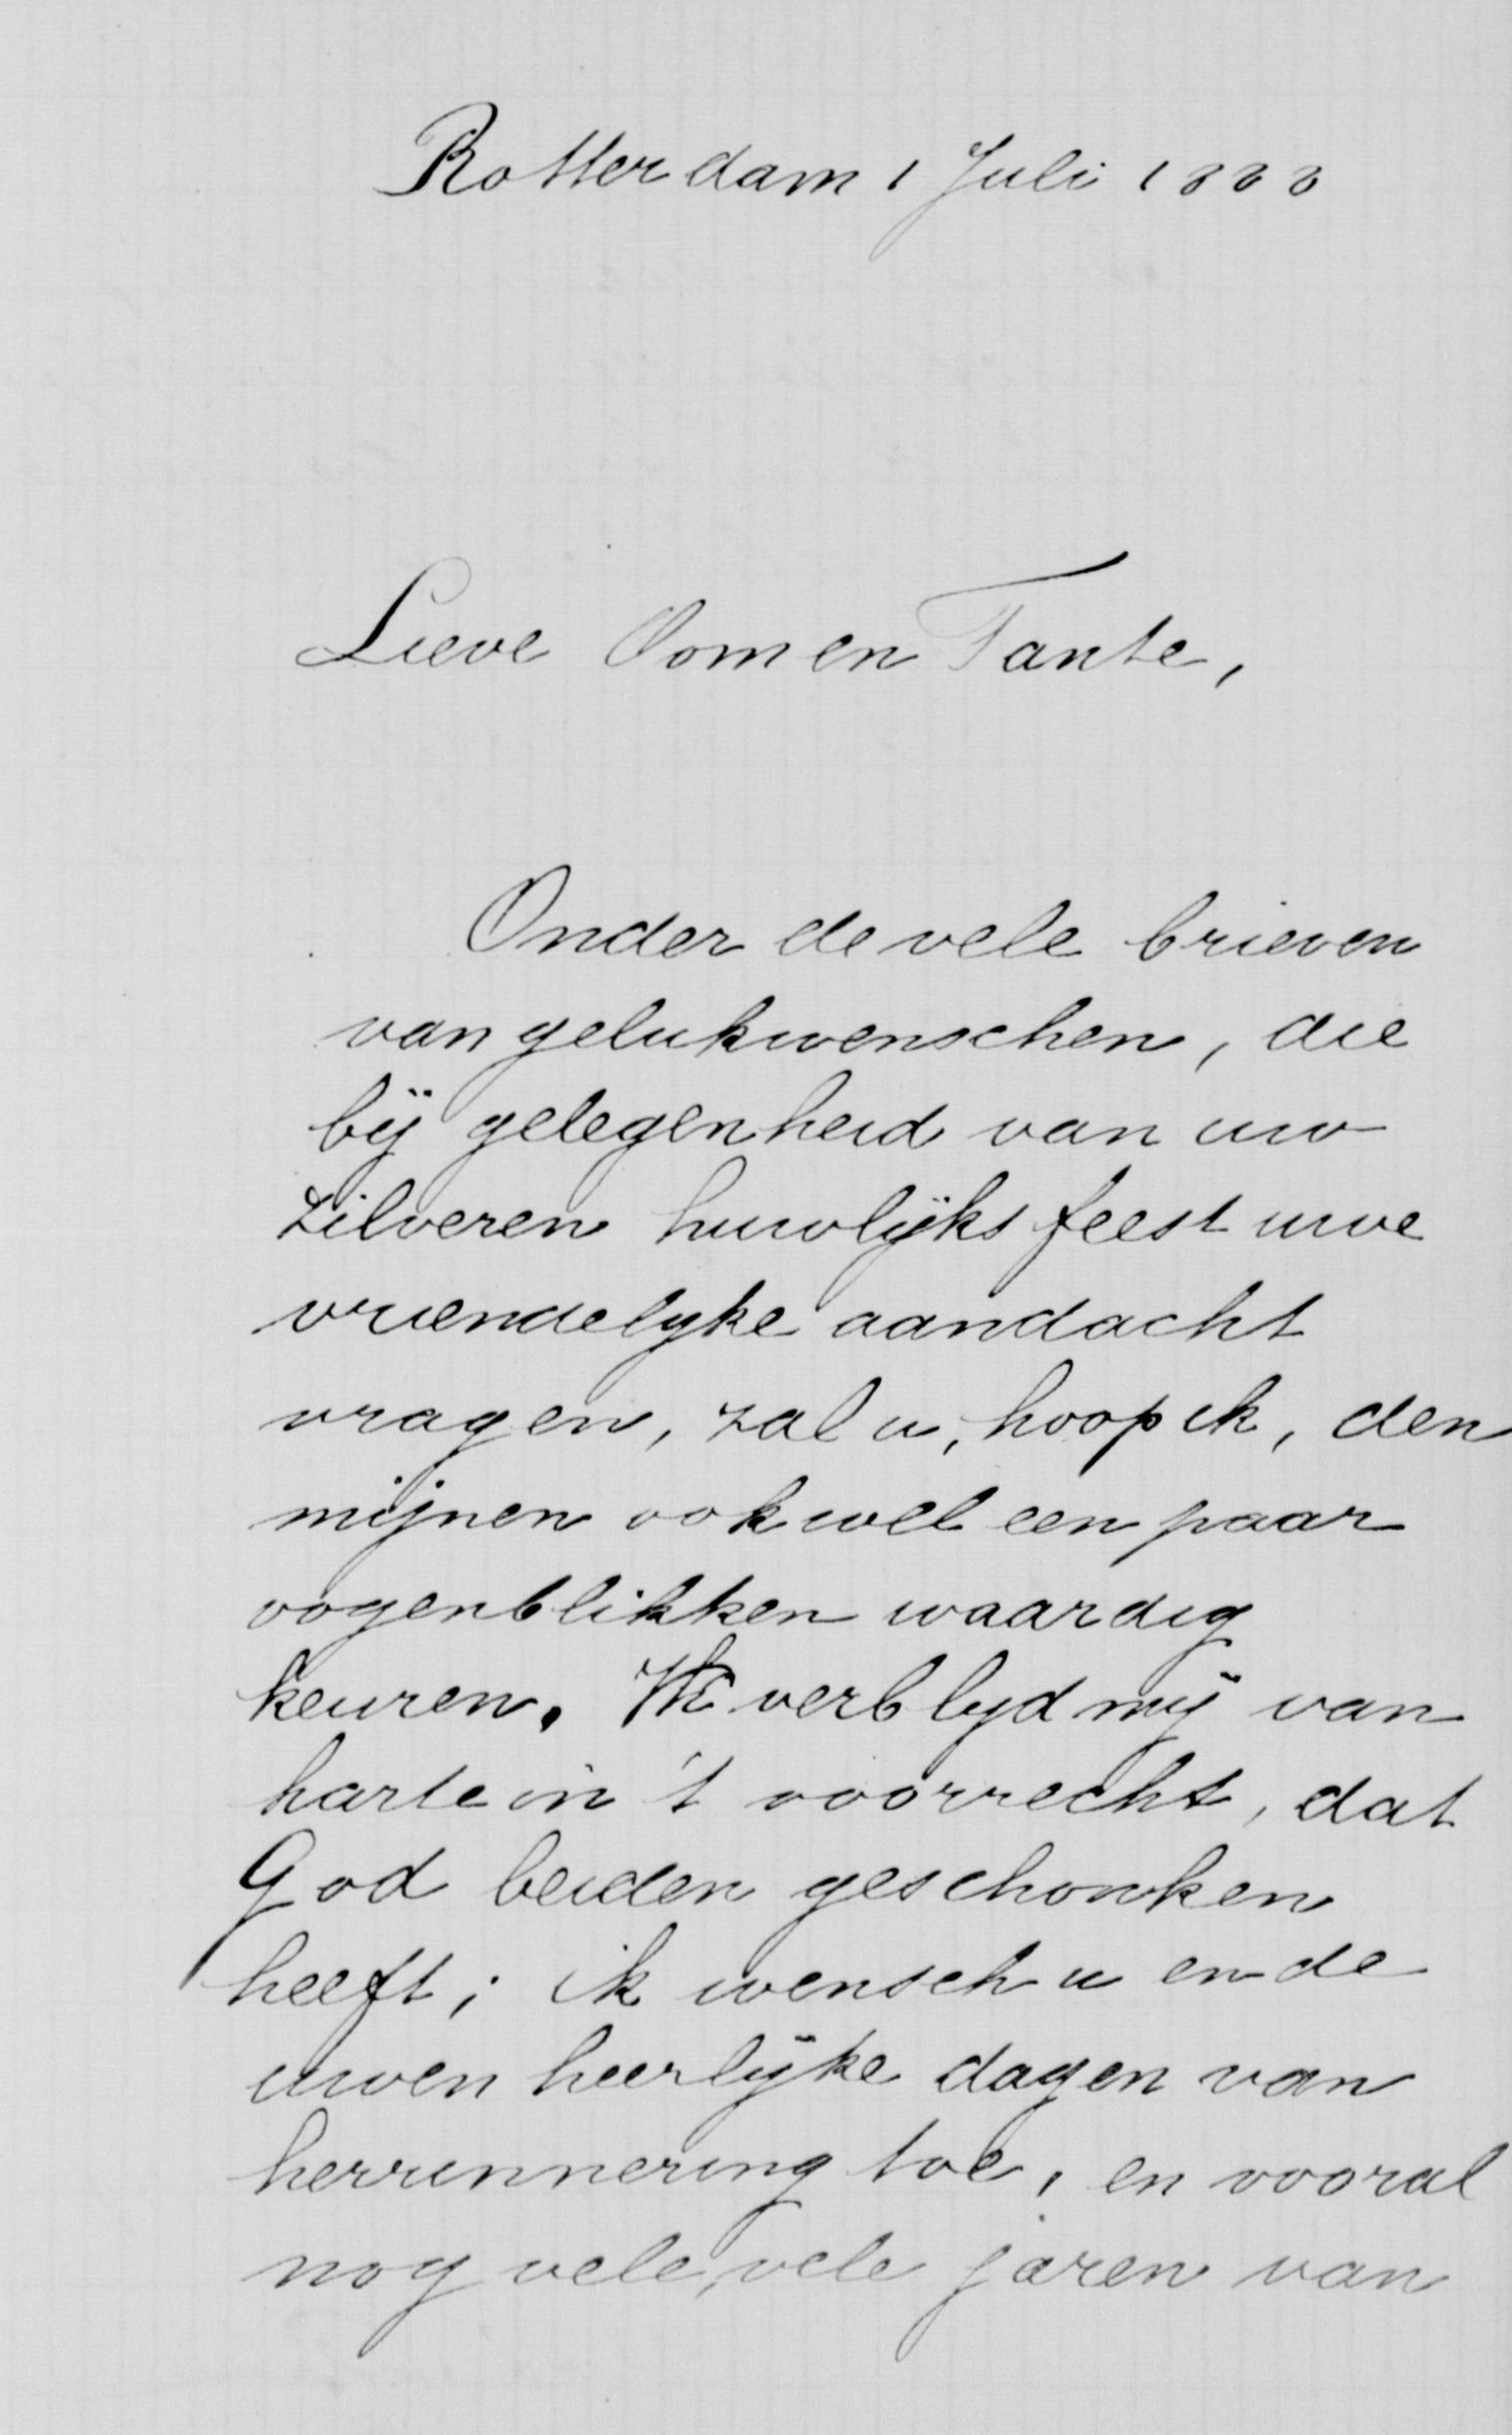 Rotterdam 1 Juli 1888
Lieve Oom en Tante,
Onder de vele brieven
van gelukwenschen, die
bij gelegenheid van uw
zilveren huwlijksfeest uwe
vriendelijke aandacht
vragen, zal u, hoop ik, den
mijnen ook wel een paar
oogenblikken waardig
keuren. Ik verblijd mij van
harte in 't voorrecht, dat
God beiden geschonken
heeft; ik wensch u en de
uwen heerlijke dagen van
herrinnering toe, en vooral
nog vele, vele jaren van